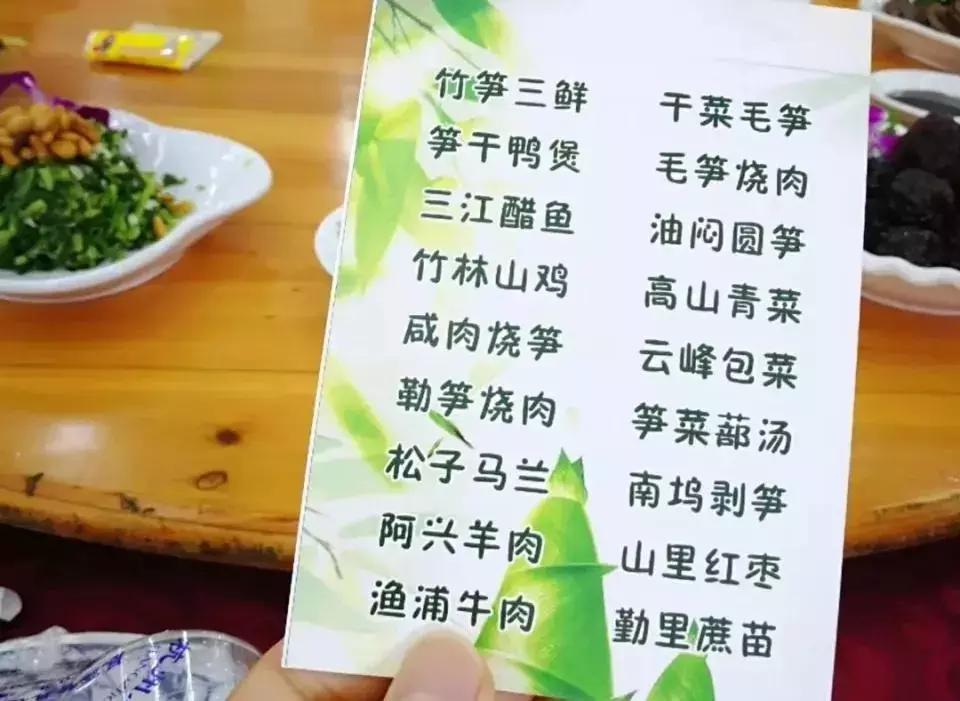 竹笋三鲜
笋干鸭煲
三江醋鱼
竹林山鸡
咸肉烧笋
勒笋烧肉
松子马兰
阿兴羊肉
渔浦牛肉
干菜毛笋
毛笋烧肉
油闷圆笋
高山青菜
云峰包菜
笋菜蔀汤
南坞剥笋
山里红枣
勤里蔗苗